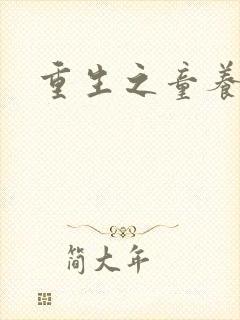 重生之童养
简大年